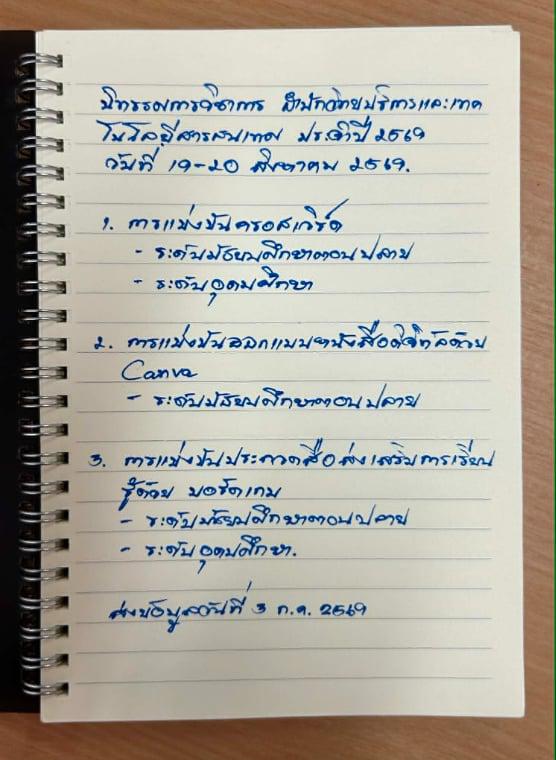 นิทรรศการวิชาการ สำนักวิทยบริการและเทค
โนโลยีสารสนเทศ ประจำปี 2569
วันที่ 19-20 สิงหาคม 2569.
1. การแข่งขันครอสเวิร์ด
- ระดับมัธยมศึกษาตอนปลาย
- ระดับอุดมศึกษา
2. การแข่งขันออกแบบหนังสือดิจิทัลด้วย
Canva
- ระดับมัธยมศึกษาตอนปลาย
3. การแข่งขันประกวดสื่อส่งเสริมการเรียน
รู้ด้วย บอร์ดเกม
- ระดับมัธยมศึกษาตอนปลาย
- ระดับอุดมศึกษา.
ส่งข้อมูลวันที่ 3 ก.ค. 2569